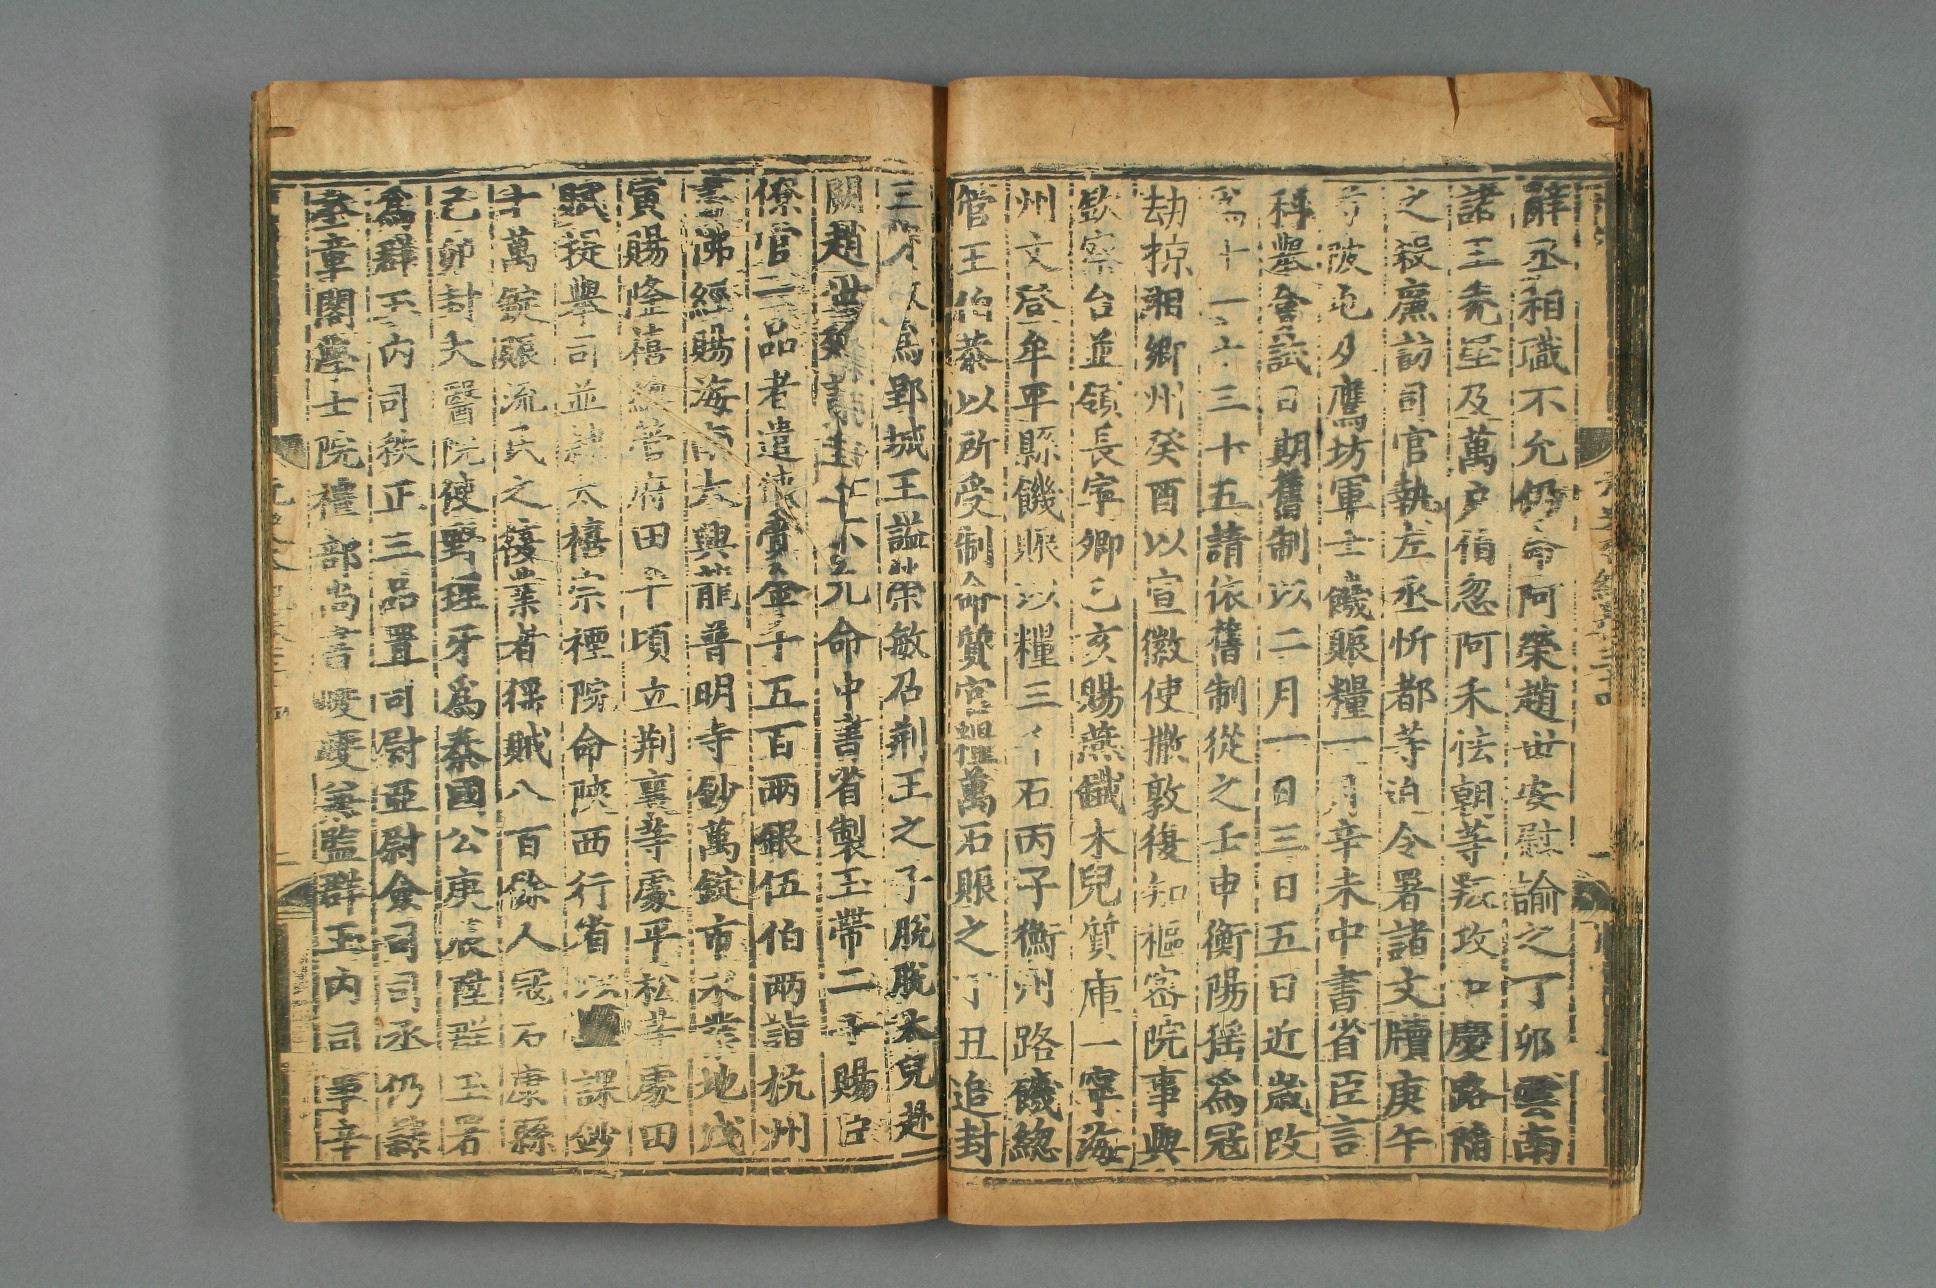 辭丞相職不允仍命阿榮趙世安慰諭之丁卯雲南
諸王禿堅及萬户伯忽阿禾怯朝等叛攻中慶路䧟
之殺廉訪司官執左丞忻都等迫令署諸文牘庚午
芍陂屯及鷹坊軍士饑賑糧一月辛未中書省臣言
科舉會試日期舊制以二月一日三日五日近嵗改
爲十一十三十五請依舊制從之壬申衡陽猺爲冦
劫掠湘鄉州癸酉以宣徽使撒敦復知樞密院事與
欽察台並領長寧卿乙亥賜燕鐵木兒質庫一寧海
州文登牟平縣饑賑以糧三千石丙子衡州路饑緫
管王伯恭以所受制命質官糧萬石賑之丁丑追封
三 爲郢城王謚榮敏召荆王之子脱脱木兒赴
闕趙世 元命中書省製玉帶二十賜臣
僚官一品者遣使賫金千五百兩銀伍伯兩詣杭州
書佛經賜海南大興龍普明寺鈔萬錠市永業地戊
寅賜隆禧緫管府田千頃立荆襄等處平松等處田
賦提舉司並𨽻太禧宗禋院命陜西行省以 課鈔
十萬錠賑流民之復業者猺賊八百餘人冦石康縣
己卯封太醫院使野理牙爲秦國公庚辰陞群玉署
爲群玉内司秩正三品置司尉亞尉僉司司丞仍𨽻
奎章閣學士院禮部尚書巎巎兼監群玉内司事辛